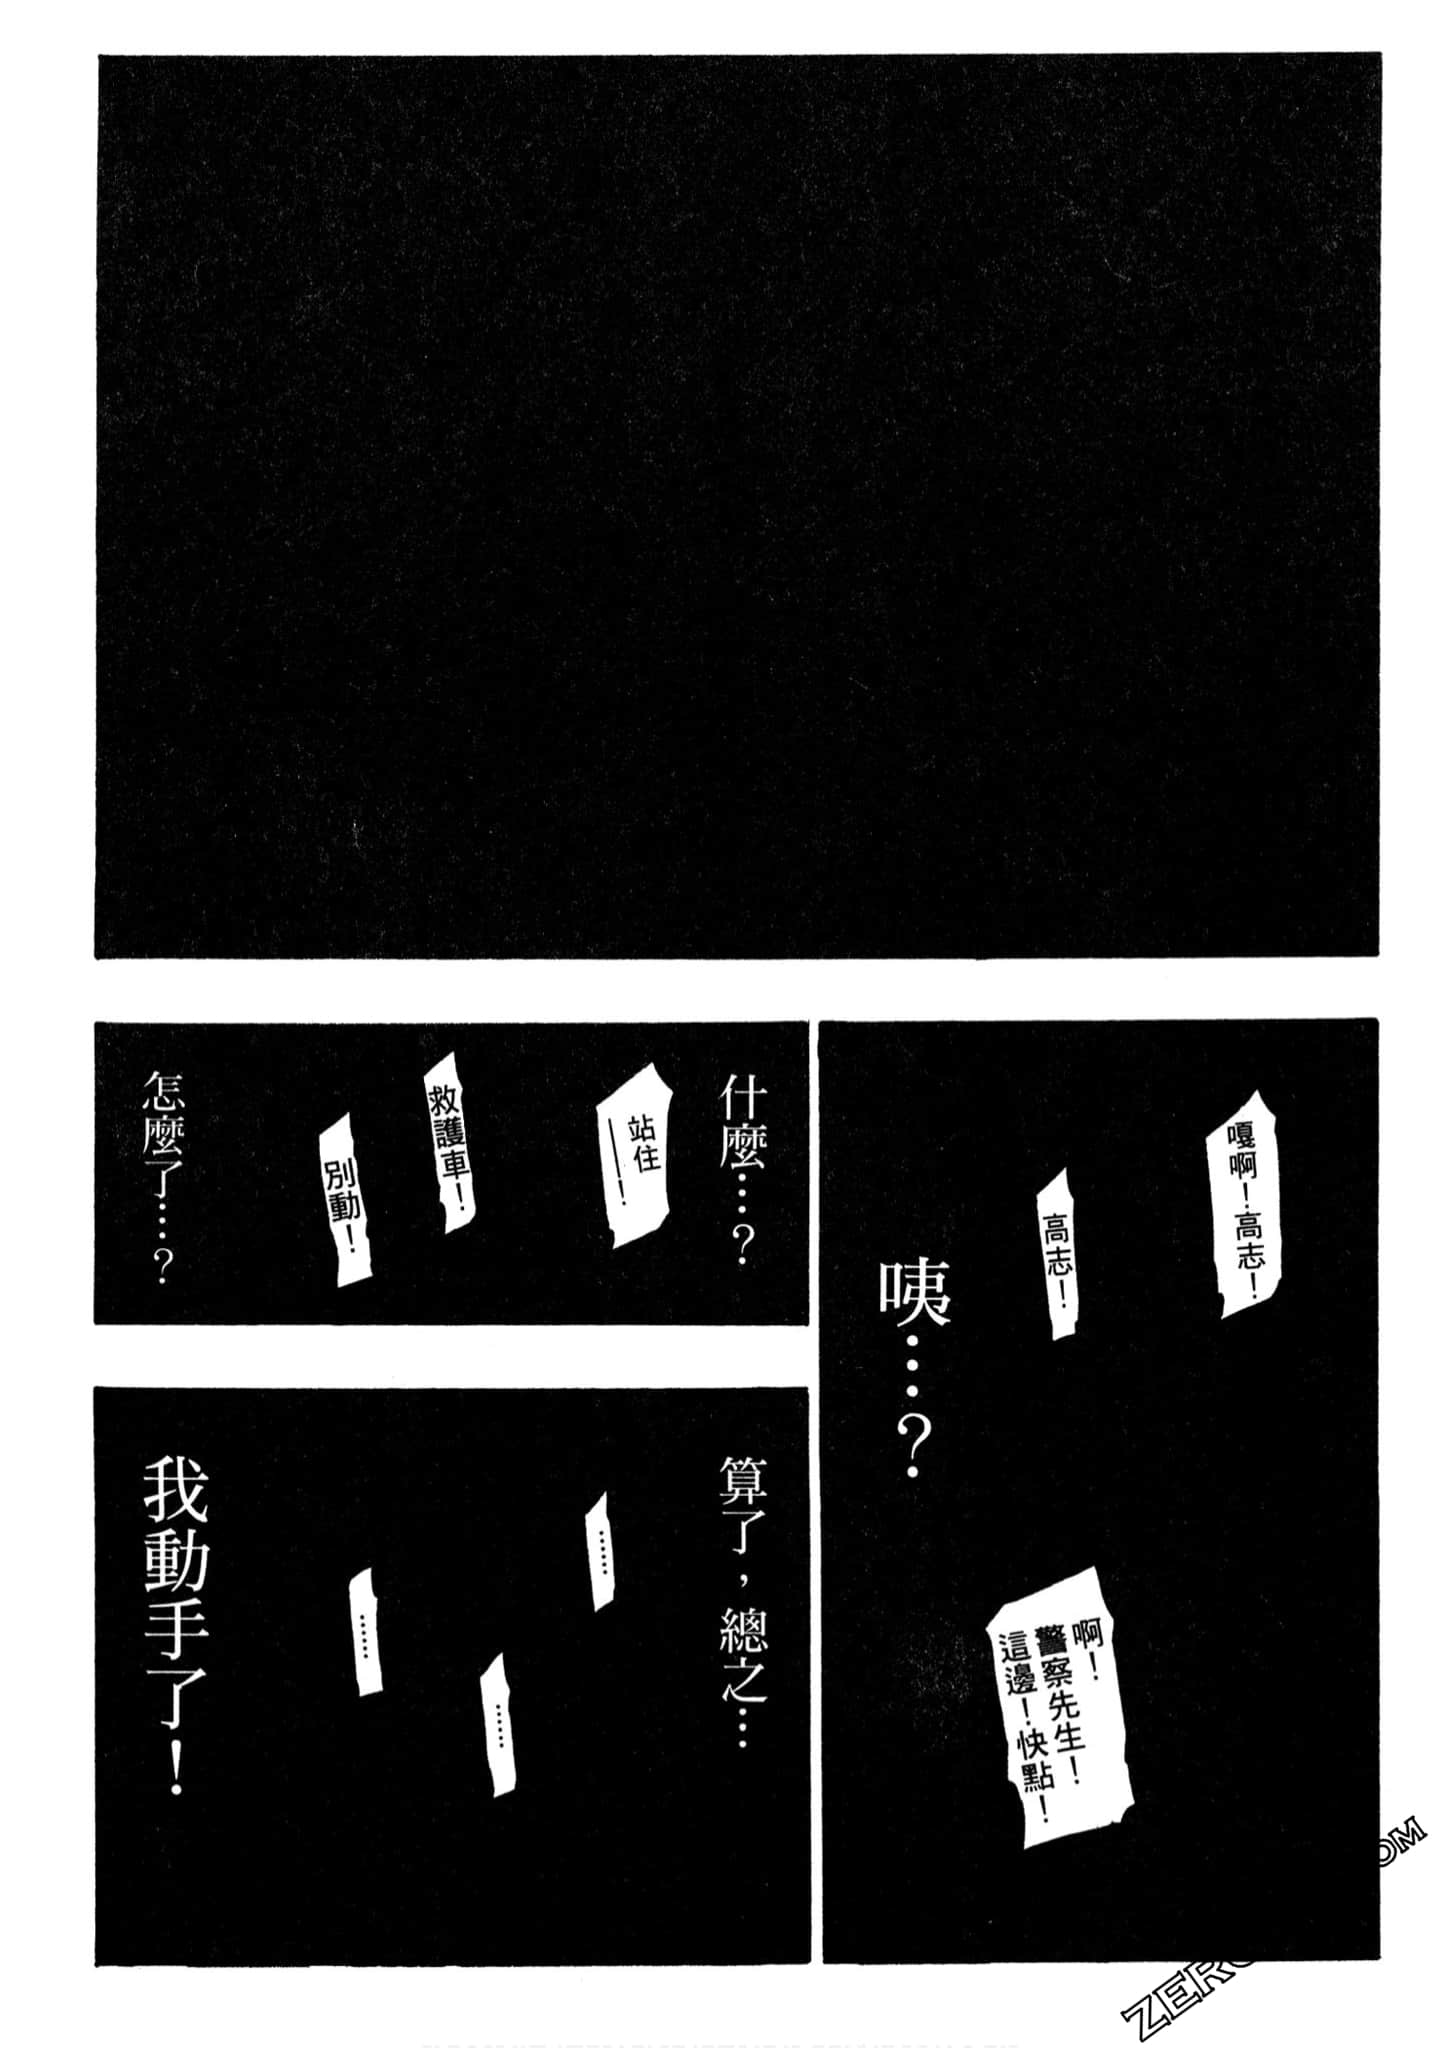 嘎啊！高志！
高志！
咦…？
啊！
警察先生！
這邊！快點！
什麼…？
站住
——！
救護車！
別動！
怎麼了…？
算了，總之…
……
……
……
我動手了！
ZERO
OM